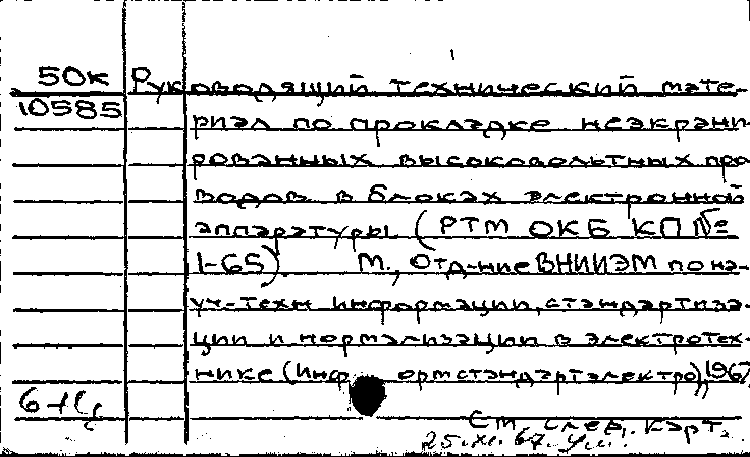 50к Руководящий технический мате-
10585 риал по прокладке неэкрани
рованных высоковольтных про
водов в блоках электронной
аппаратуры (РТМ ОКБ КП №
1-65). М., Отд-ние ВНИИЭМ по на-
уч-техн информации, стандартиза-
ции и нормализации в электротех-
нике (Информстандартэлектро), 1967
См. след. карт.
25.XI.67.